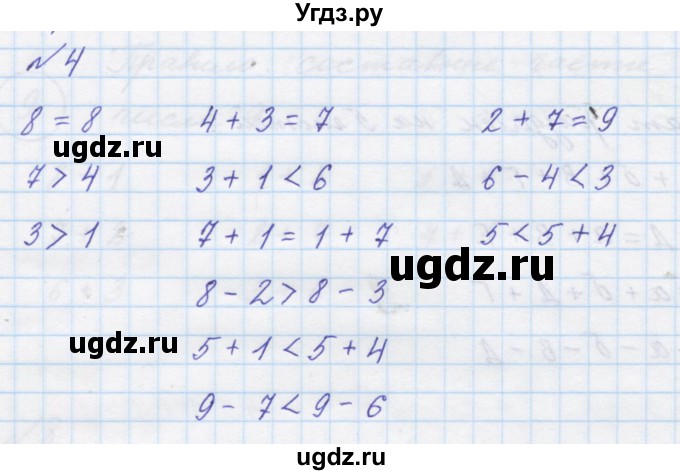 Угдз.ру
№ 4
8 = 8
7 > 4
3 > 1
4 + 3 = 7
3 + 1 < 6
7 + 1 = 1 + 7
8 - 2 > 8 - 3
5 + 1 < 5 + 4
9 - 7 < 9 - 6
2 + 7 = 9
6 - 4 < 3
5 < 5 + 4
ugdz.ru
ugdz.ru
ugdz.ru
ugdz.ru
ugdz.ru